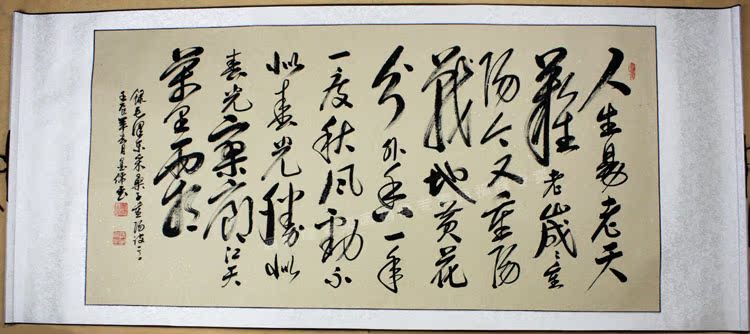 人生易老天
難老歲々重
陽今又重陽
戰地黄花
分外香一年
一度秋風勁不
似春光勝似
春光寥廓江天
萬里霜
錄毛澤東采桑子重陽詞